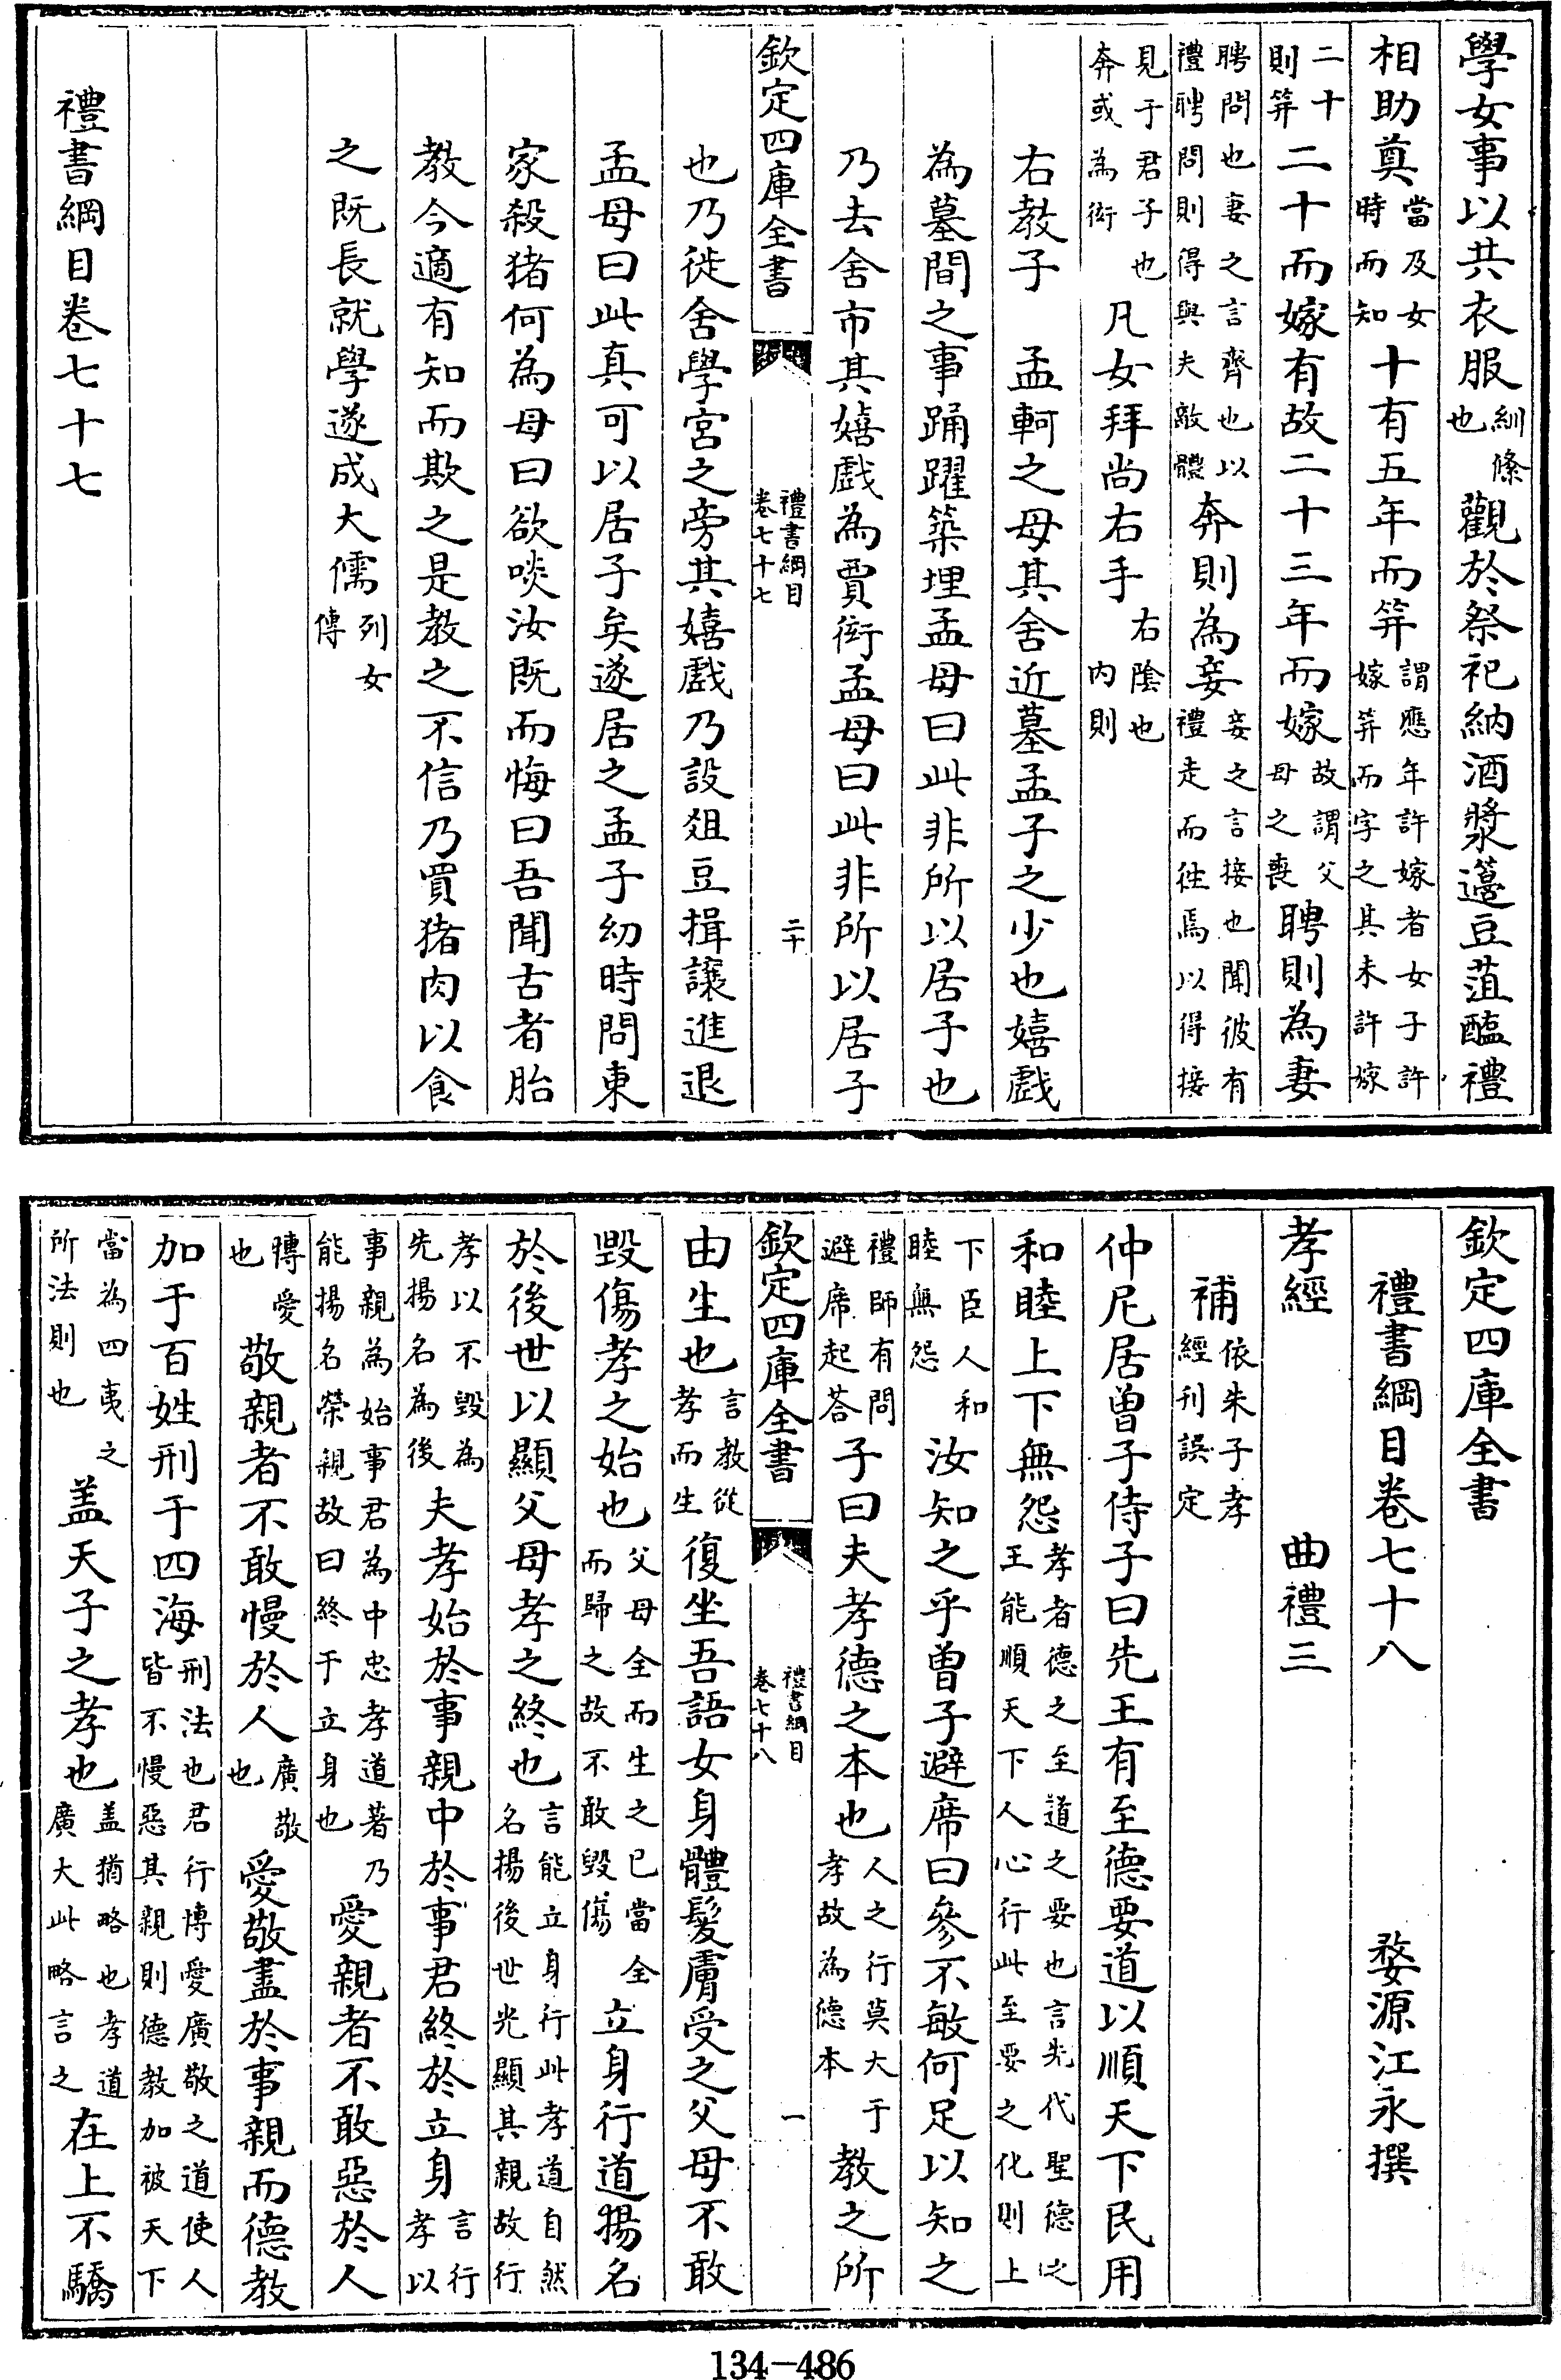 學女事以共衣服紃絛也觀於祭祀納酒漿籩豆菹醢禮
相助奠當及女時而知十有五年而笄謂應年許嫁者女子許嫁笄而字之其未許嫁
二十則笄二十而嫁有故二十三年而嫁故謂父母之喪聘則為妻
聘問也妻之言齊也以禮聘問則得與夫敵體奔則為妾妾之言接也聞彼有禮走而往焉以得接
見于君子也奔或為衒凡女拜尚右手右陰也内則
右教子　孟軻之母其舍近墓孟子之少也嬉戲
為墓間之事踊躍築埋孟母曰此非所以居子也
乃去舍市其嬉戲為賈衒孟母曰此非所以居子
欽定四庫全書　禮書綱目卷七十七　二十
也乃徙舍學宮之旁其嬉戲乃設俎豆揖讓進退
孟母曰此真可以居子矣遂居之孟子幼時問東
家殺猪何為母曰欲啖汝既而悔曰吾聞古者胎
教今適有知而欺之是教之不信乃買猪肉以食
之既長就學遂成大儒列女傳
禮書綱目卷七十七
欽定四庫全書
禮書綱目卷七十八　婺源江永撰
孝經　曲禮三
補依朱子孝經刊誤定
仲尼居曾子侍子曰先王有至德要道以順天下民用
和睦上下無怨孝者德之至道之要也言先代聖德之王能順天下人心行此至要之化則上
下臣人和睦無怨汝知之乎曾子避席曰參不敏何足以知之
禮師有問避席起荅子曰夫孝德之本也人之行莫大于孝故為德本教之所
欽定四庫全書　禮書綱目卷七十八　一
由生也言教從孝而生復坐吾語女身體髮膚受之父母不敢
毀傷孝之始也父母全而生之已當全而歸之故不敢毀傷立身行道揚名
於後世以顯父母孝之終也言能立身行此孝道自然名揚後世光顯其親故行
孝以不毀為先揚名為後夫孝始於事親中於事君終於立身言行孝以
事親為始事君為中忠孝道著乃能揚名榮親故曰終于立身也愛親者不敢惡於人
博愛也敬親者不敢慢於人廣敬也愛敬盡於事親而德教
加于百姓刑于四海刑法也君行博愛廣敬之道使人皆不慢惡其親則德教加被天下
當為四夷之所法則也盖天子之孝也盖猶略也孝道廣大此略言之在上不驕
134-486